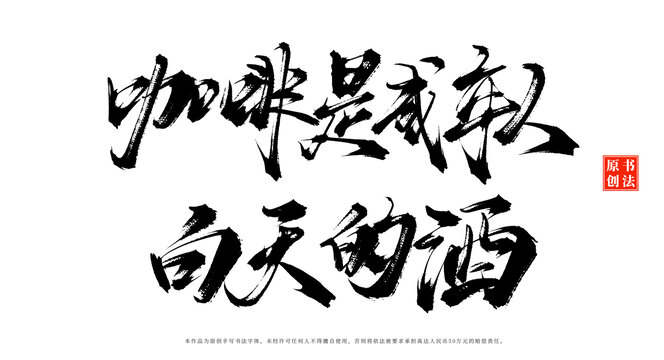 咖啡是成年人
白天的酒
原创
书法
本作品为原创手写书法字体，未经许可任何人不得擅自使用，否则将依法被要求承担高达人民币50万元的赔偿责任。